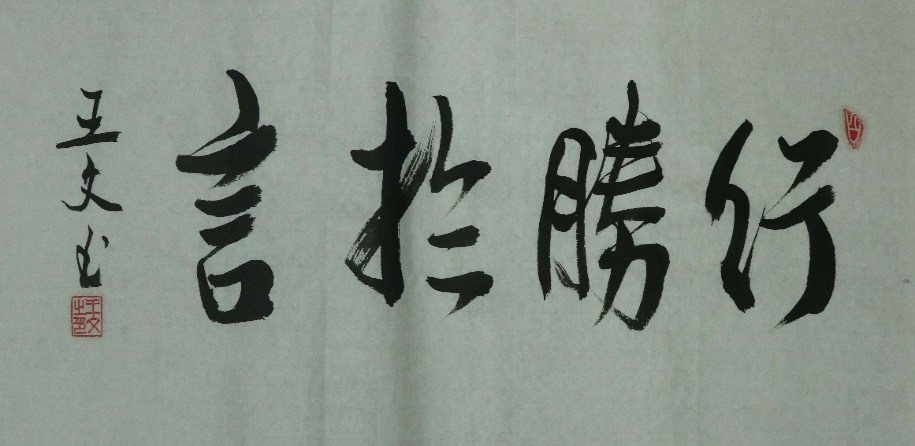 行勝於言
王文书